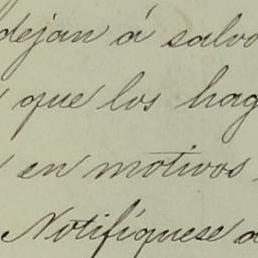 dejan á salvo
que los hag
en motivos
Notifíquese a